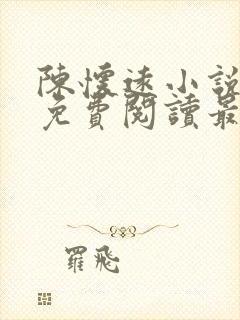 陳懷遠小說
免費閱讀最
羅飛